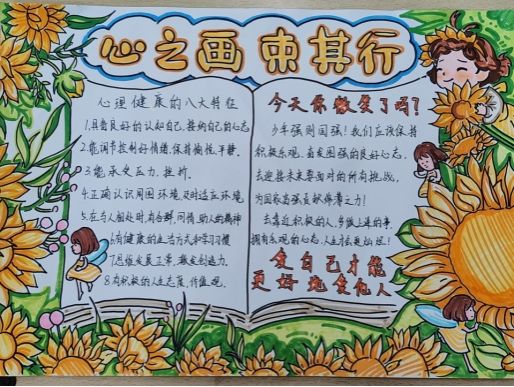 心之画 束其行
心理健康的八大特征
1.具备良好的认知自己、接纳自己的心态
2.能调节控制好情绪,保持愉悦、平静.
3.能承受压力、挫折.
4.正确认识周围环境,及时适应环境
5.在与人相处时有合群、同情、助人的精神
6.有健康的生活方式和学习习惯
7.思维发展正常,激发创造力.
8.有积极的人生态度、价值观.
今天你微笑了吗?
少年强则国强!我们应该保持
积极乐观、奋发图强的良好心态.
去迎县未来要面对的所有挑战,
为国家富强贡献绵薄之力!
去靠近积极的人,多做上进的事,
拥有乐观的心态,人生才会更灿烂!
爱自己才能
更好地爱他人